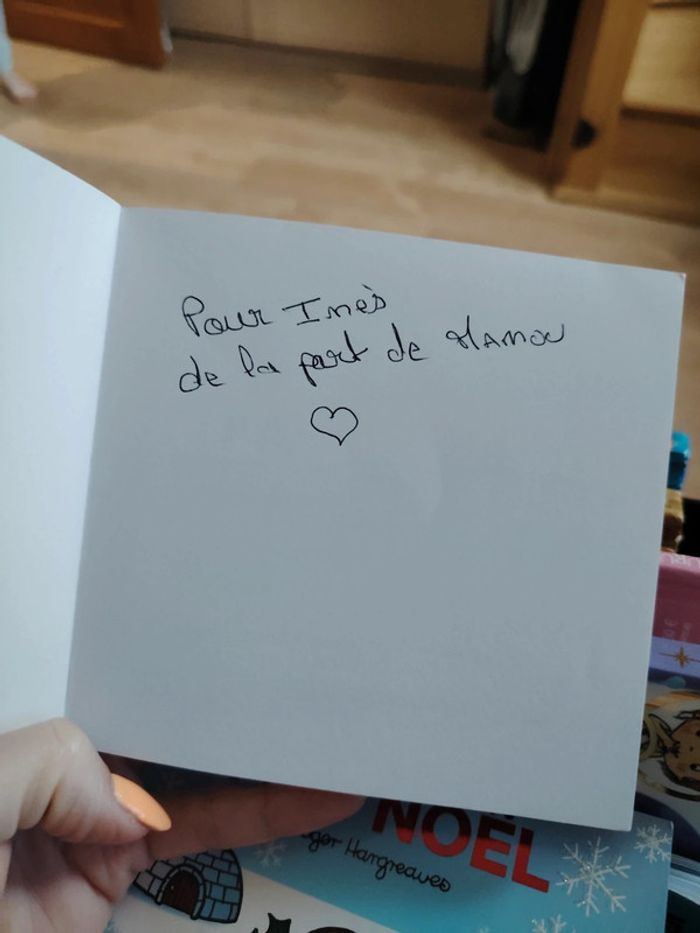 Pour Inès
de la part de MAMOU
NOËL
ger Hargreaves